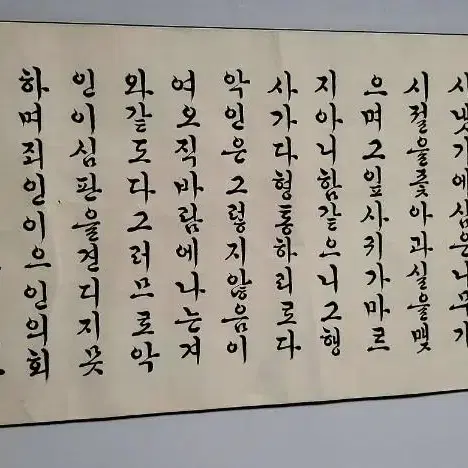 시냇가에심은나무가
시절을좇아과실을맺
으며그잎사귀가마르
지아니함같으니그행
사가다형통하리로다
악인은그렇지않음이
여오직바람에나는겨
와같도다그러므로악
인이심판을견디지못
하며죄인이으인의회